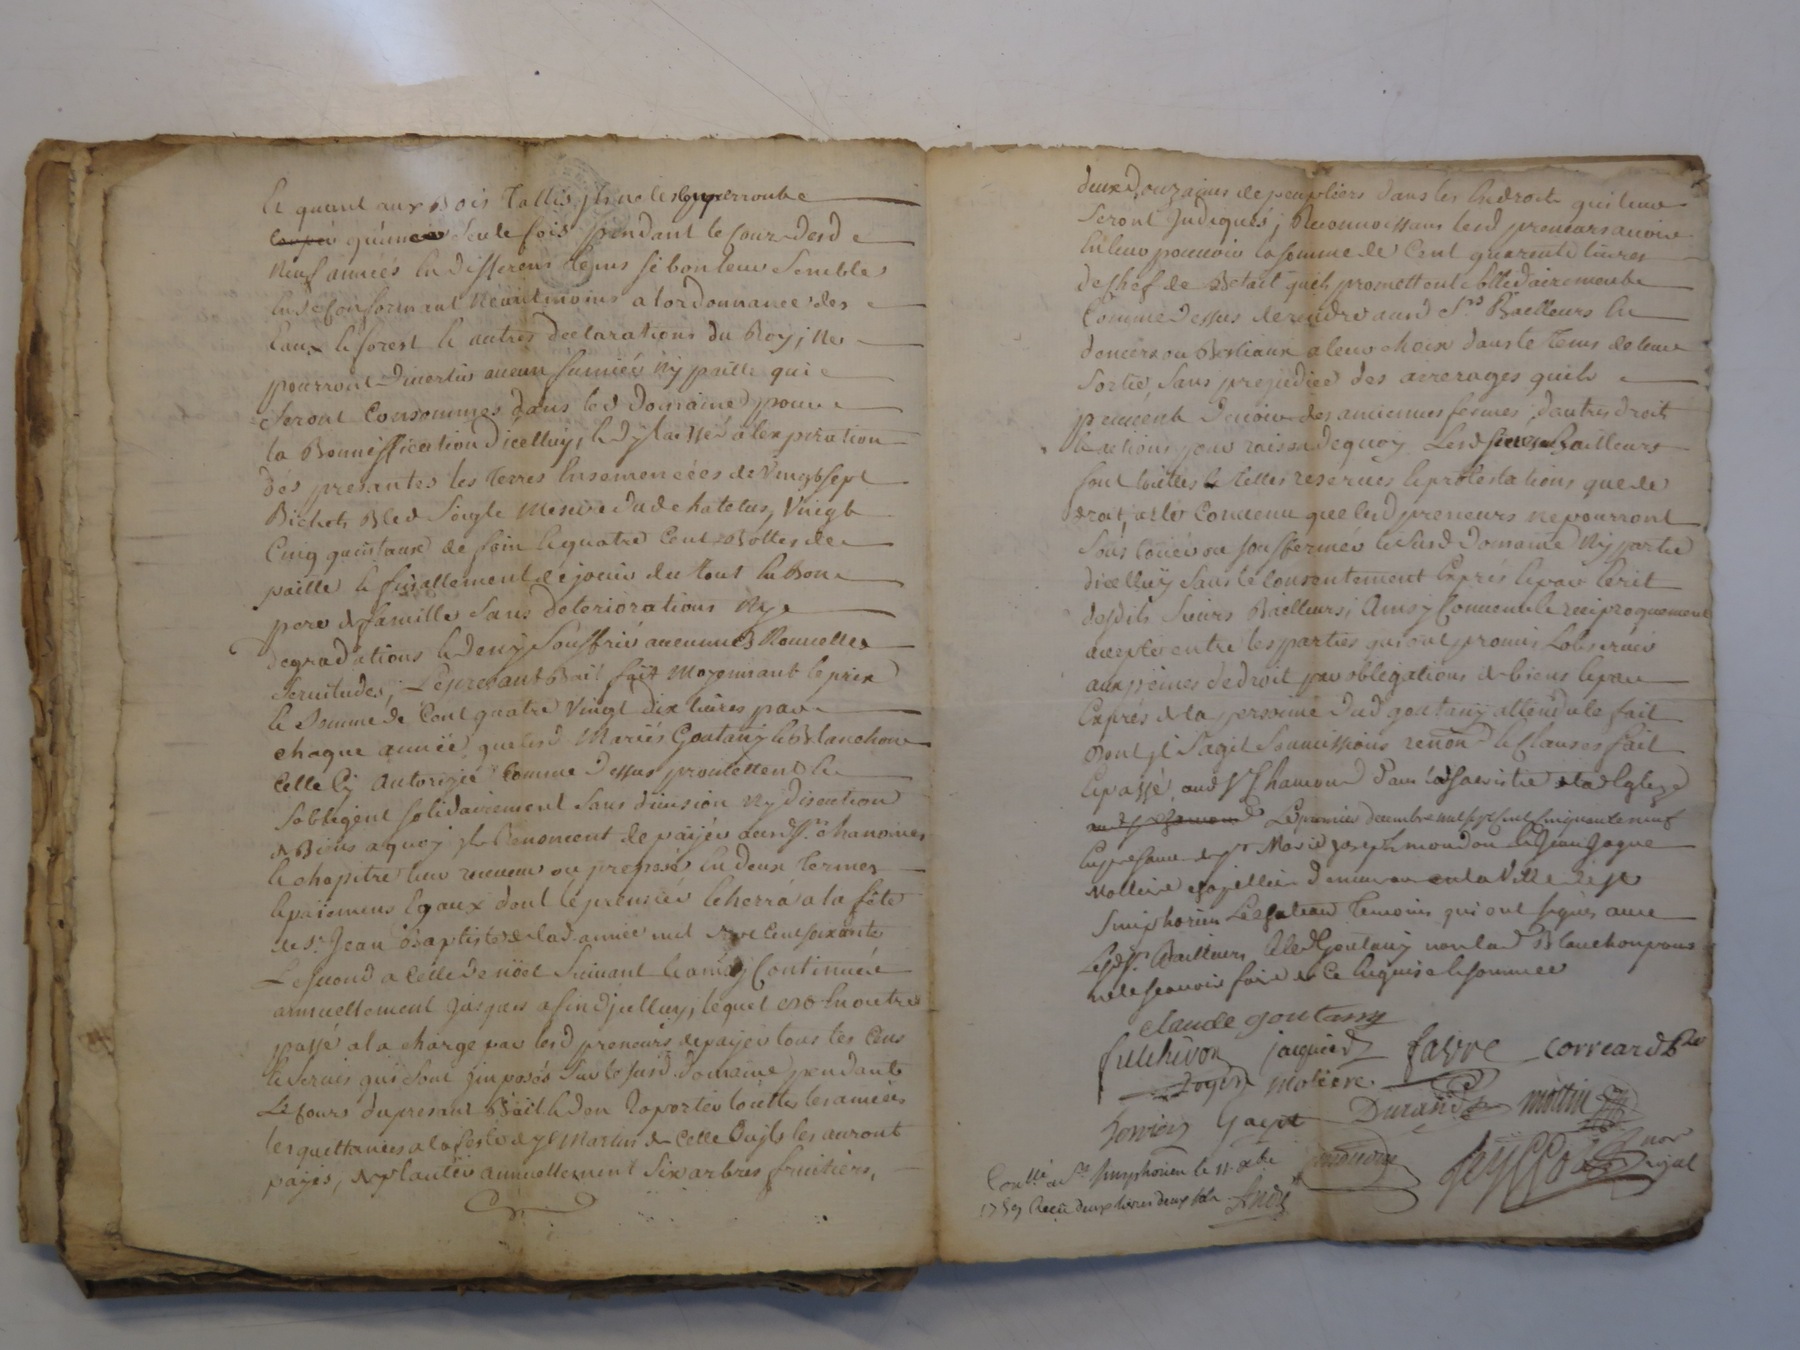 Et quant aux Bois Tallis ils ne les couperront
qu'une seule fois pendant le cour desd
neuf années En differens tems si bon leur Semble
En se Conformant Neantmoins a lordonnance des
Eaux & forest & autres declarations du Roy, ne
pourront Divertir aucun fumier Ny paille qui
seront Consommés dans led Domaine pour
la Bonnification d'icelluy, & d'y laisser a lexpiration
dés presantes les Terres Ensemencées de vingt sept
Bichets Bled Seigle Mesure dud chatelus, Vingt
Cinq quintaux de foin & quatre Cent Bottes de
paille & finallement de jouir du tout En Bon
pere de famille sans deteriorations Ny
degradations & d'en y Souffrir aucunnes Nouvelles
servitudes; Le presant Bail fait Moyennant le prix
& Somme de Cent quatre Vingt Dix livres par
chaque année que lesd Mariés Goutany & Blanchon
Celle Cy Autorizée Comme Dessus promettent &
Sobligent solidairement Sans division Ny discution
de Biens a quoy ils Renoncent de payer auxd Srs chanoines
& chapitre leur receveur ou preposé En deux Termes
& payemens Egaux dont le premier Echerra a la fête
de St Jean Baptiste de lad année mil sept Cent soixante
Le segond a Celle de Nöel Suivant & ainsy Continuer
annuellement Jusques a fin d'jcelluy, lequel est En outre
passé a la charge par lesd preneurs de payer tous les Cens
& servis qui sont jmposés Sur le susd Domaine pendant
Le Cours du presant Bail & d'en raporter touttes les années
les quittances a la feste de St Martin de Celle Quils les auront
payés, de planter annuellement Six arbres fruitiers,
deux Douzaines de peupliers dans les Endroits qui leur
seront Indiqués; Reconnoissans lesd preneurs avoir
En leur pouvoir la somme de Cent quarente livres
de chef de Betail quils promettent solidairement
Comme Dessus de rendre auxd Srs Bailleurs En
deniers ou Bestiaux a leur choix dans le Tems de leur
Sortie, Sans prejudice des arrerages quils
peuvent Devoir des anciennes fermes, d'autres droits
& actions pour raison de quoy Lesd sieurs Bailleurs
font touttes & telles reserves & protestations que de
droit, a Eté Convenu que lesd preneurs ne pourront
Sous louer ou sousfermer le Susd Domaine Ny partie
d'icelluy Sans le Consentement Exprés & par Ecrit
desdits Sieurs Bailleurs; Ainsy Convenu & reciproquement
accepté entre les parties qui ont promis Lobserver
aux peines de droit par obligations de biens & par
Exprés de la personne dud goutany attendu le fait
Dont jl Sagit Soumissions renon & Clauses fait
& passé aud St Chamond dans la Sacristie de lad Eglize
Le premier decembre mil sept cent cinquante neuf
En presance de Sr Marie Joseph mondon & Jean Jaque
Moliere chapellier Demeurant en la Ville de St
Simphorien Le chateau Temoins qui ont signés avec
Lesd Srs Bailleurs & led Goutany non lad Blanchon pour
ne le scavoir faire de Ce Enquise & sommée
claude goutany
fulchiron jacquier favre correard
moliere
gayot Durand mottin
royal
Conllé a St Simphorien le 11 xbre
1759 Reçu deux livres deux sols André